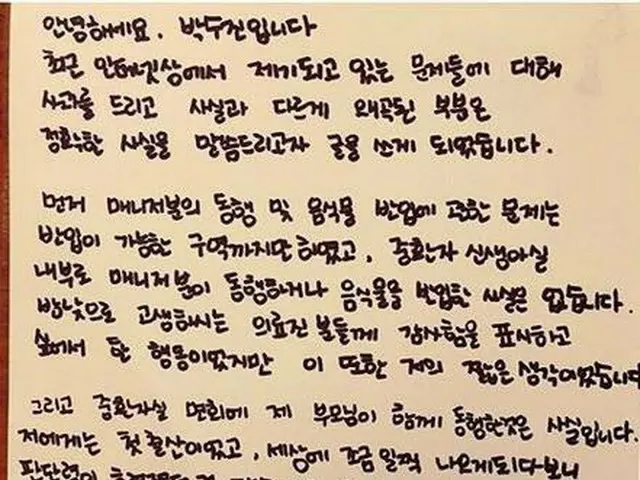 안녕하세요. 박수진입니다
최근 인터넷상에서 제기되고 있는 문제들에 대해
사과를 드리고 사실과 다르게 왜곡된 부분은
정확한 사실을 말씀드리고자 글을 쓰게 되었습니다.
먼저 매니저분의 동행 및 음식물 반입에 관한 문제는
반입이 가능한 구역까지만 하였고, 중환자 신생아실
내부로 매니저분이 동행하거나 음식물을 반입한 사실은 없습니다.
밤낮으로 고생하시는 의료진 분들께 감사함을 표시하고
싶어서 한 행동이었지만 이 또한 저의 짧은 생각이었습니다
그리고 중환자실 면회에 제 부모님이 함께 동행한것은 사실입니다.
저에게는 첫 출산이었고, 세상에 조금 일찍 나오게되다보니
판단력이